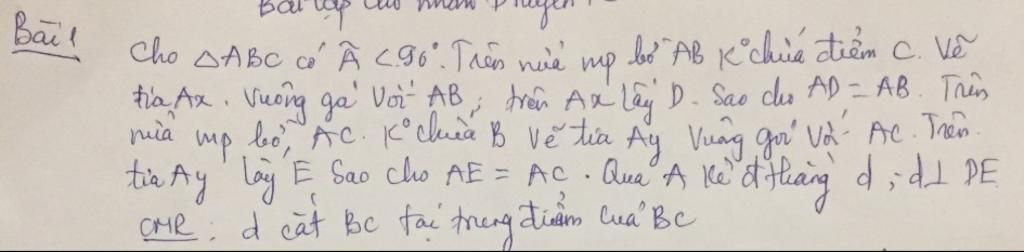 Bài tập cho nhóm
Bài 1
Cho △ABC có Â < 90°. Trên nửa mp bờ AB K° chứa điểm C. Vẽ
tia Ax. Vuông góc Với AB, trên Ax lấy D. Sao cho AD = AB. Trên
nửa mp bờ, AC. K° chứa B Vẽ tia Ay Vuông góc Với AC. Trên
tia Ay lấy E Sao cho AE = AC. Qua A Kẻ đ thẳng d, d⊥ DE
CMR: d cắt BC tại trung điểm của BC